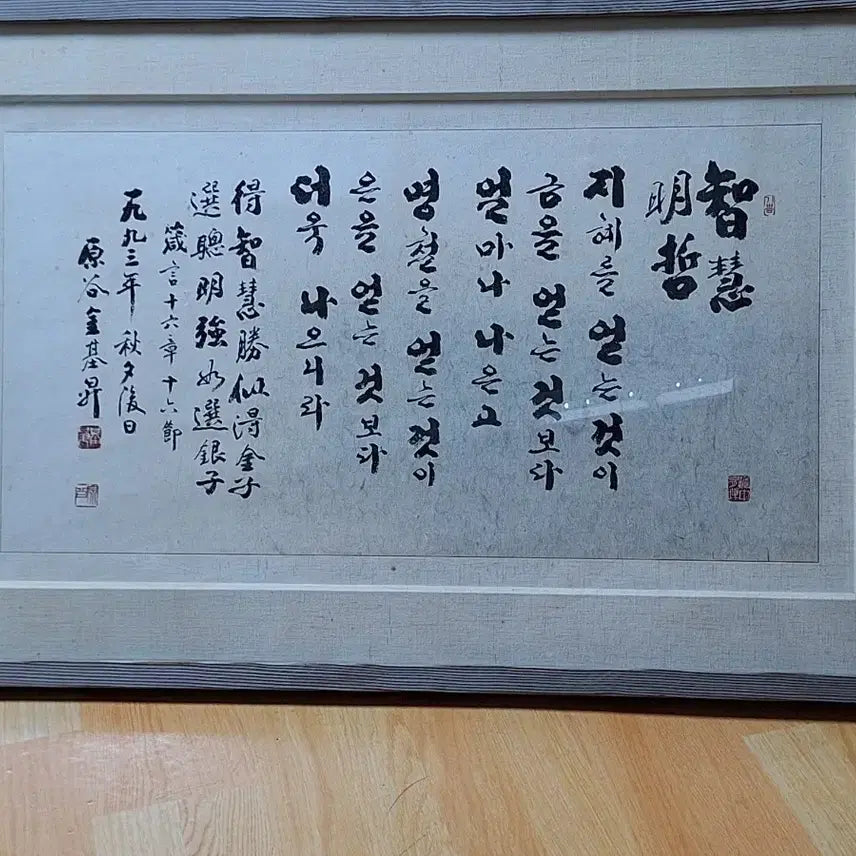 智慧
明哲
지혜를 얻는 것이
금을 얻는 것보다
얼마나 나은고
명철을 얻는 것이
은을 얻는 것보다
더욱 나으니라
得智慧勝似得金子
選聰明強如選銀子
箴言十六章十六節
一九九三年秋夕後日
原谷金基昇